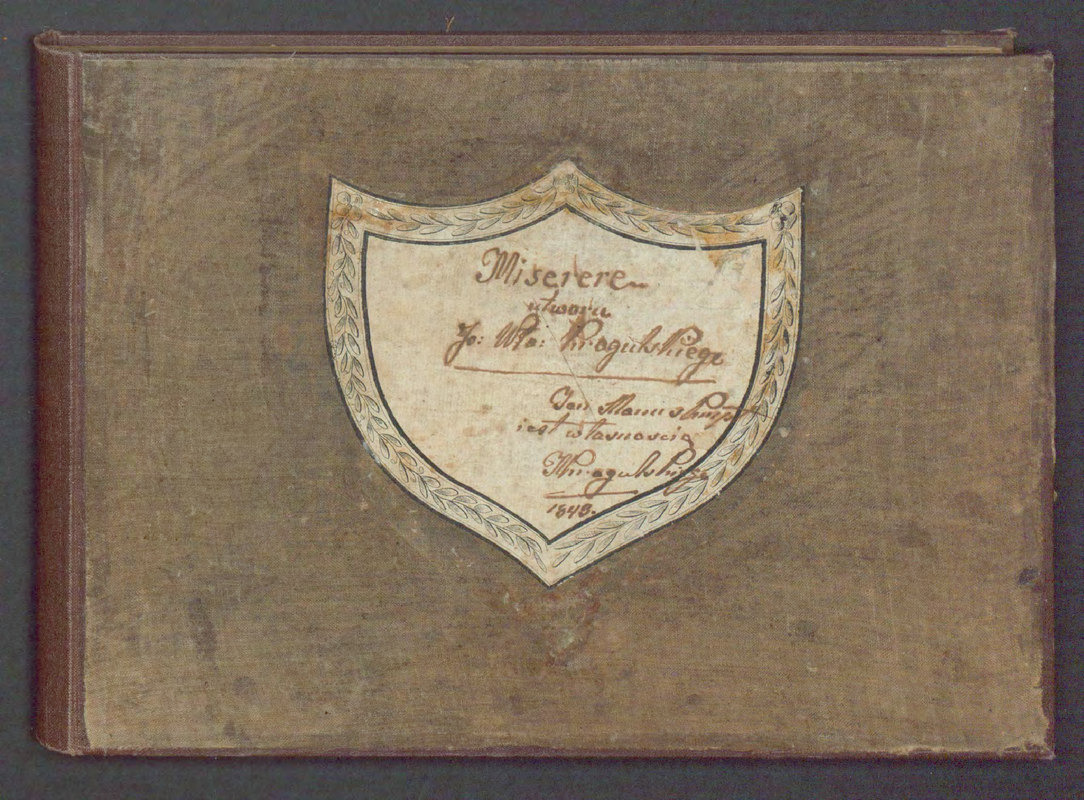 Miserere
utworu
Jo: Wła: Krogulskiego
Ten Manuskrypt
iest własnoscią
Krogulskiego
1843.